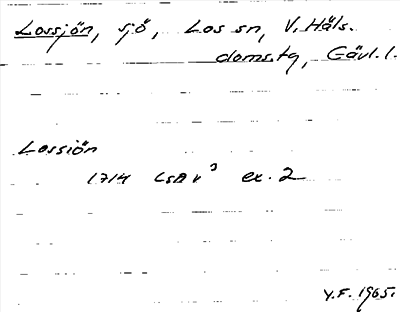 Lossjön, sjö, Los sn, V. Häls.
doms.tg, Gävl. l.
Lossiön
1714 LSA V³ ex. 2
Y.F. 1965.